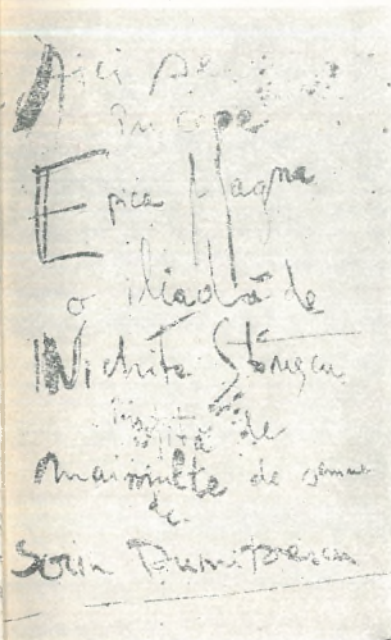 Aici se
începe
Epica Magna
o iliadă de
Nichita Stănescu
de
mai multe de semne
de
Sorin Dumitrescu